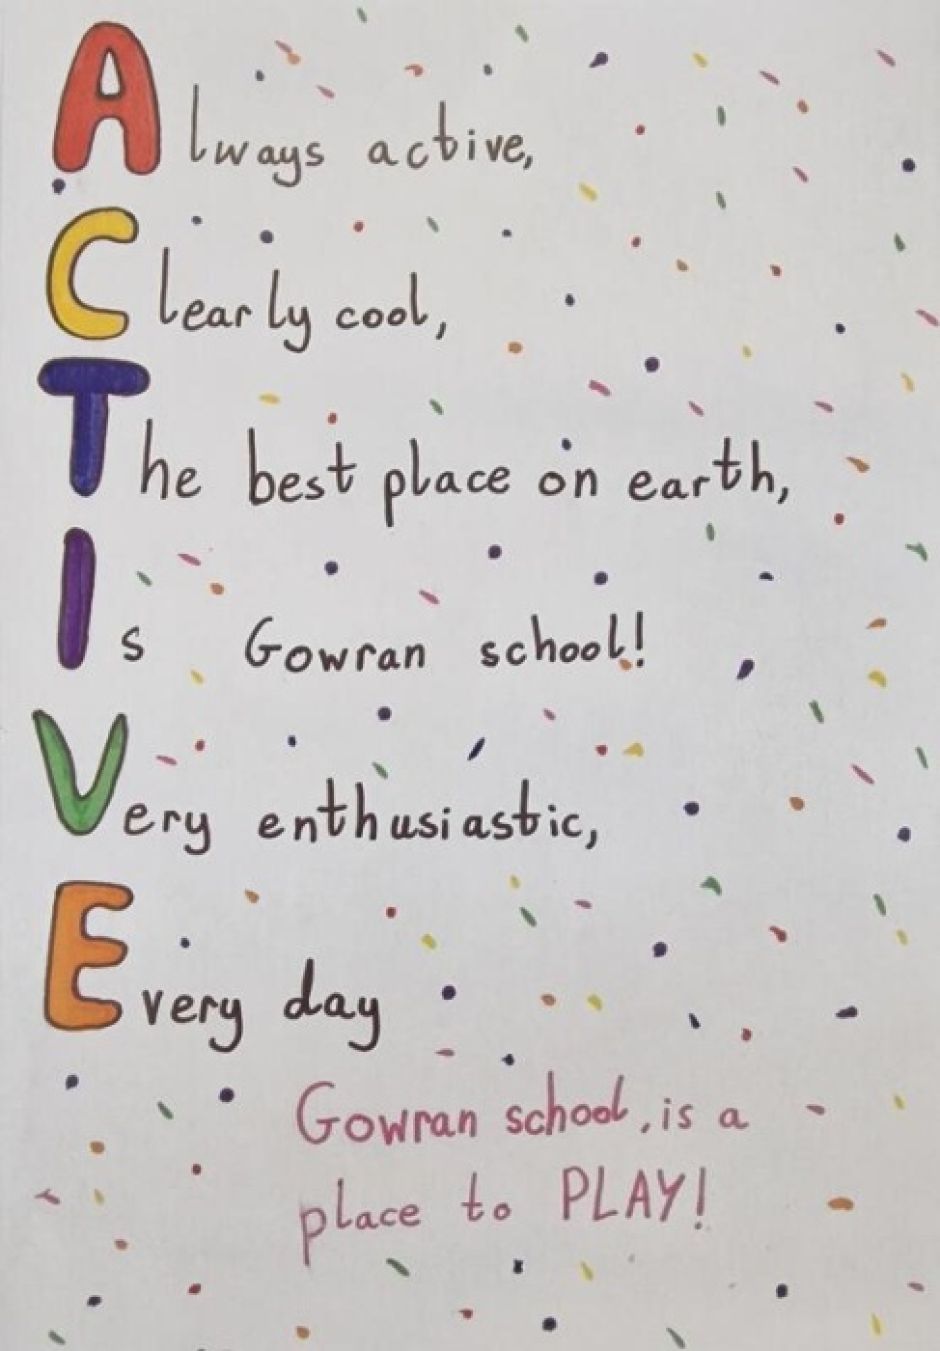 Always active,
Clearly cool,
The best place on earth,
Is Gowran school!
Very enthusiastic,
Every day
Gowran school, is a
place to PLAY!